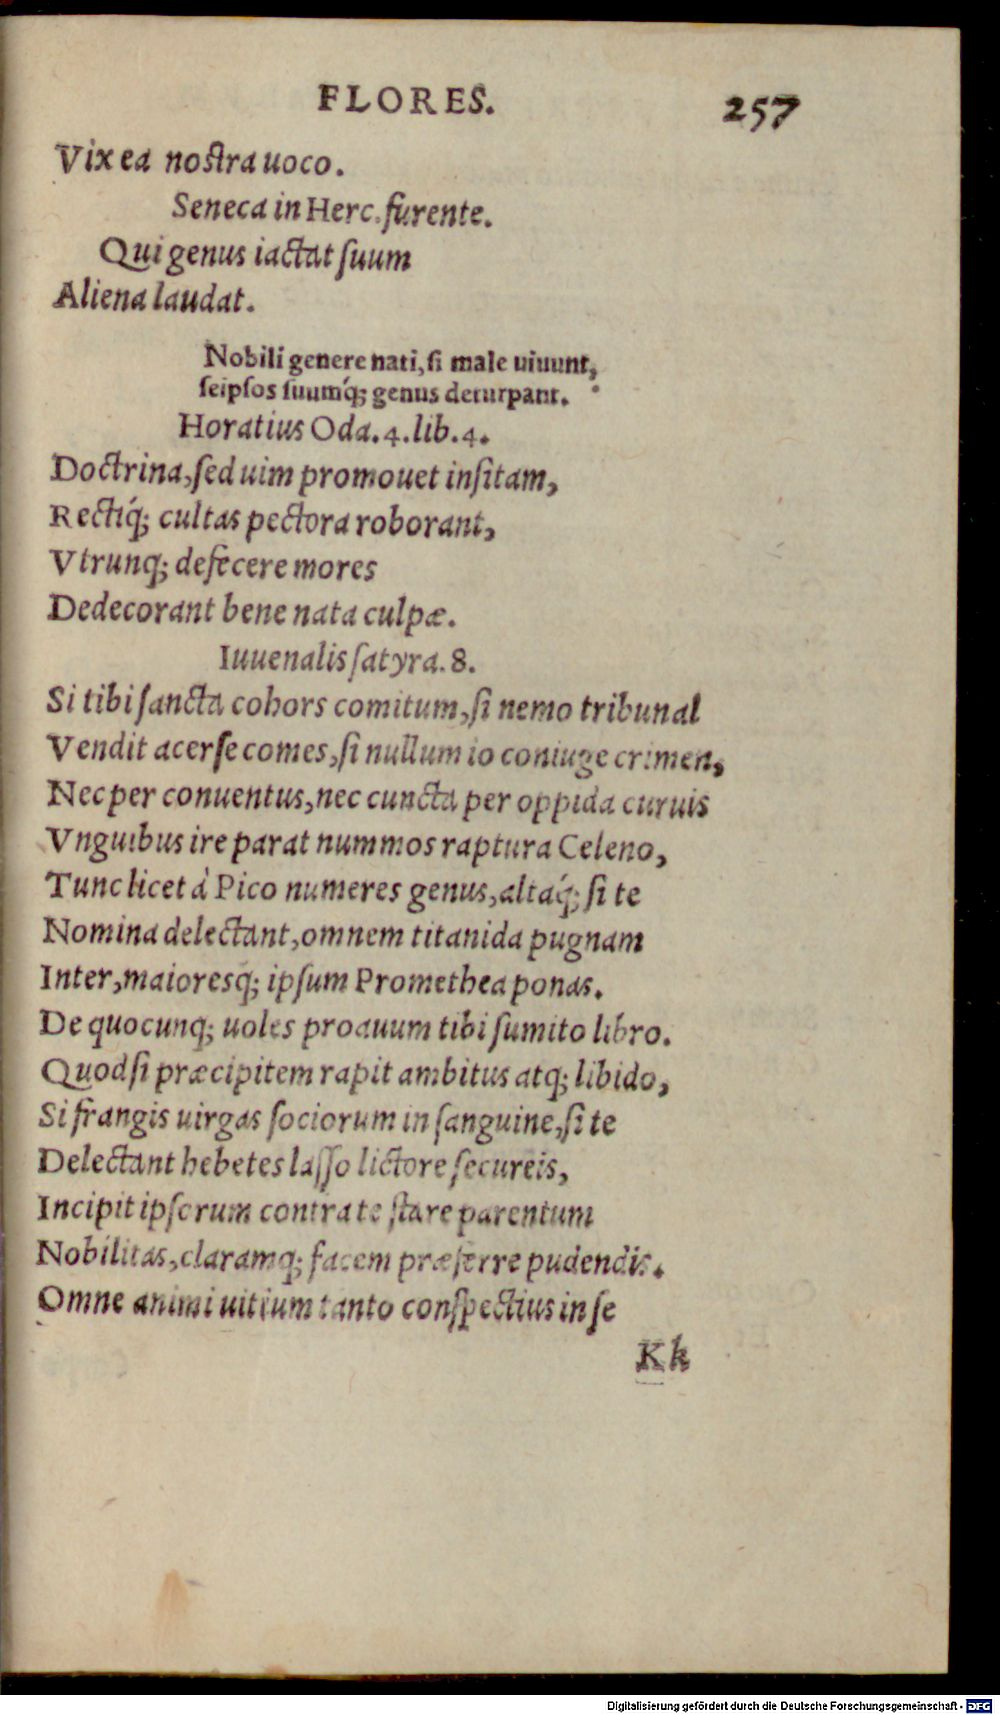 FLORES. 257
Vix ea nostra uoco.
Seneca in Herc. furente.
Qui genus iactat suum
Aliena laudat.
Nobili genere nati, si male uiuunt,
seipsos suumq́; genus deturpant.
Horatius Oda. 4. lib. 4.
Doctrina, sed uim promouet insitam,
Rectiq́; cultas pectora roborant,
Vtrunq; defecere mores
Dedecorant bene nata culpæ.
Iuuenalis satyra. 8.
Si tibi sancta cohors comitum, si nemo tribunal
Vendit acersecomes, si nullum io coniuge crimen,
Nec per conuentus, nec cuncta per oppida curuis
Vnguibus ire parat nummos raptura Celeno,
Tunc licet à Pico numeres genus, altaq́; si te
Nomina delectant, omnem titanida pugnam
Inter, maioresq; ipsum Promethea ponas.
De quocunq; uoles proauum tibi sumito libro.
Quod si præcipitem rapit ambitus atq; libido,
Si frangis uirgas sociorum in sanguine, si te
Delectant hebetes lasso lictore secureis,
Incipit ipsorum contra te stare parentum
Nobilitas, claramq; facem præferre pudendis.
Omne animi uitium tanto conspectius in se
Kk
Digitalisierung gefördert durch die Deutsche Forschungsgemeinschaft - DFG